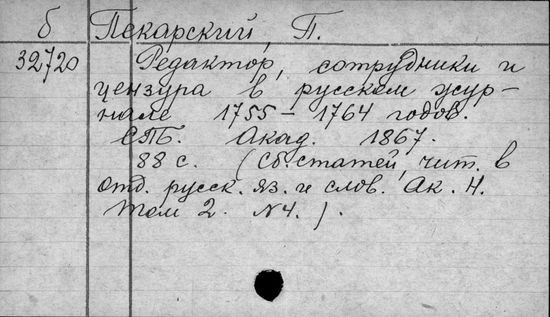 б Пекарский, П.
32720 Редактор, сотрудники и
цензура в русском жур-
нале 1755 – 1764 годов.
СПБ. Акад. 1867.
88 с. (Сб. статей, чит. в
отд. русск. яз. и слов. Ак. Н.
Том 2. № 4.).